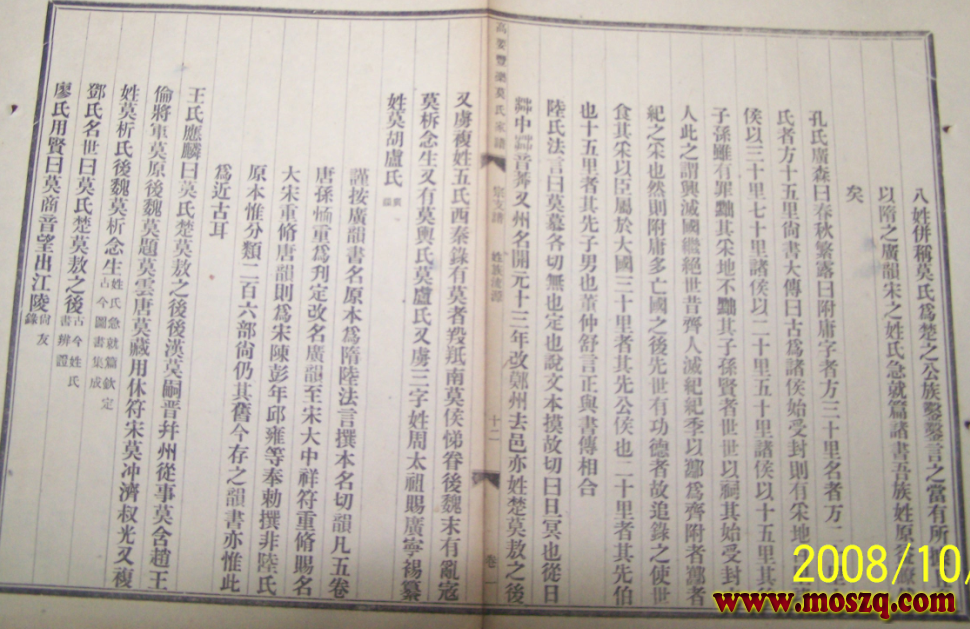 八姓併稱莫氏爲楚之公族鑿鑿言之當有所
以隋之廣韻宋之姓氏急就篇諸書吾族姓原
矣
孔氏廣森曰春秋繁露曰附庸字者方三十里名者方二
氏者方十五里尙書大傳曰古爲諸侯始受封則有采地
侯以三十里七十里諸侯以二十里五十里諸侯以十五里其後
子孫雖有罪黜其采地不黜其子孫賢者世世以祠其始受封
人此之謂興滅國繼絕世昔齊人滅紀紀季以酅爲齊附者酅者
紀之采也然則附庸多亡國之後先世有功德者故追錄之使世
食其采以臣屬於大國三十里者其先公侯也二十里者其先伯
也十五里者其先子男也董仲舒言正與書傳相合
陸氏法言曰莫慕各切無也定也說文本摸故切曰日冥也從日
茻中茻音莽又州名開元十三年改鄚州去邑亦姓楚莫敖之後
高要豐樂莫氏家譜 宗支譜 姓族流源 十二 卷一
又虜複姓五氏西秦錄有莫者羖羝南莫侯悌眷後魏末有亂寇
莫折念生又有莫輿氏莫盧氏又虜三字姓周太祖賜廣寧禓纂
姓莫胡盧氏 廣韻
謹按廣韻書名原本爲隋陸法言撰本名切韻凡五卷
唐孫愐重爲刋定改名廣韻至宋大中祥符重脩賜名
大宋重脩唐韻則爲宋陳彭年邱雍等奉勅撰非陸氏
原本惟分類二百六部尙仍其舊今存之韻書亦惟此
爲近古耳
王氏應麟曰莫氏楚莫敖之後後漢莫嗣晉幷州從事莫含趙王
倫將軍莫原後魏莫題莫雲唐莫藏用休符宋莫冲濟叔光又複
姓莫折氏後魏莫折念生 姓氏急就篇欽定古今圖書集成
鄧氏名世曰莫氏楚莫敖之後 古今姓氏書辨證
廖氏用賢曰莫商音望出江陵 尙友錄
2008/10
www.moszq.com